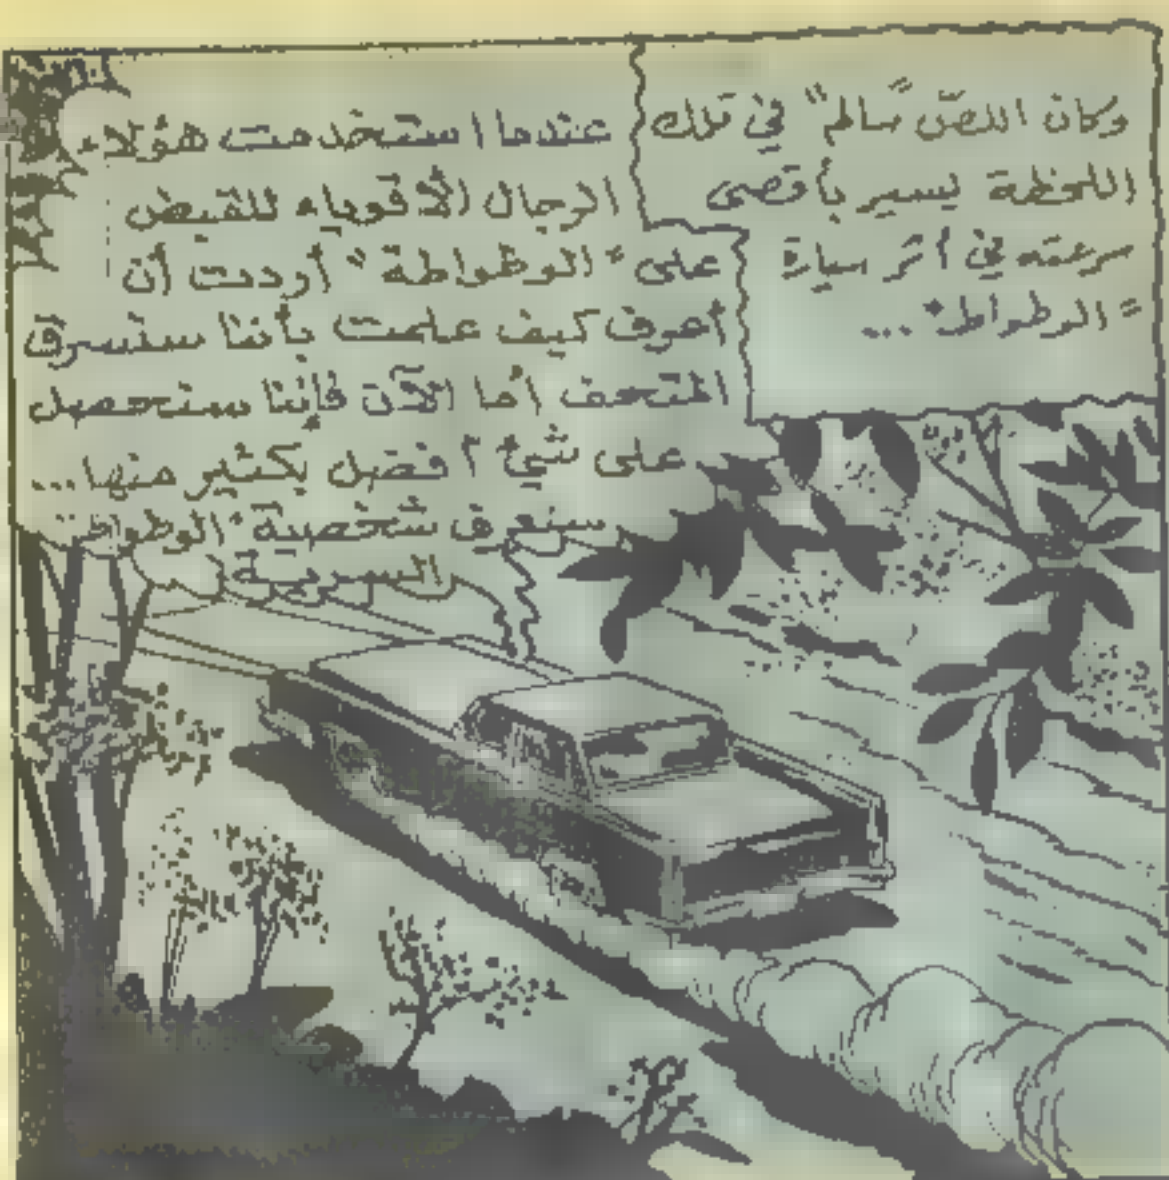 وكان اللصّ "سالم" في تلك
اللحظة يسير بأقصى
سرعته في أثر سيارة
"الوطواط" ...
عندما استخدمت هؤلاء
الرجال الأقوياء للقبض
على "الوطواطة" أردت أن
أعرف كيف علمت بأننا سنسرق
المتحف أما الآن فإننا سنحصل
على شيء أفضل بكثير منها...
سنعرف شخصية "الوطواط"
السرية